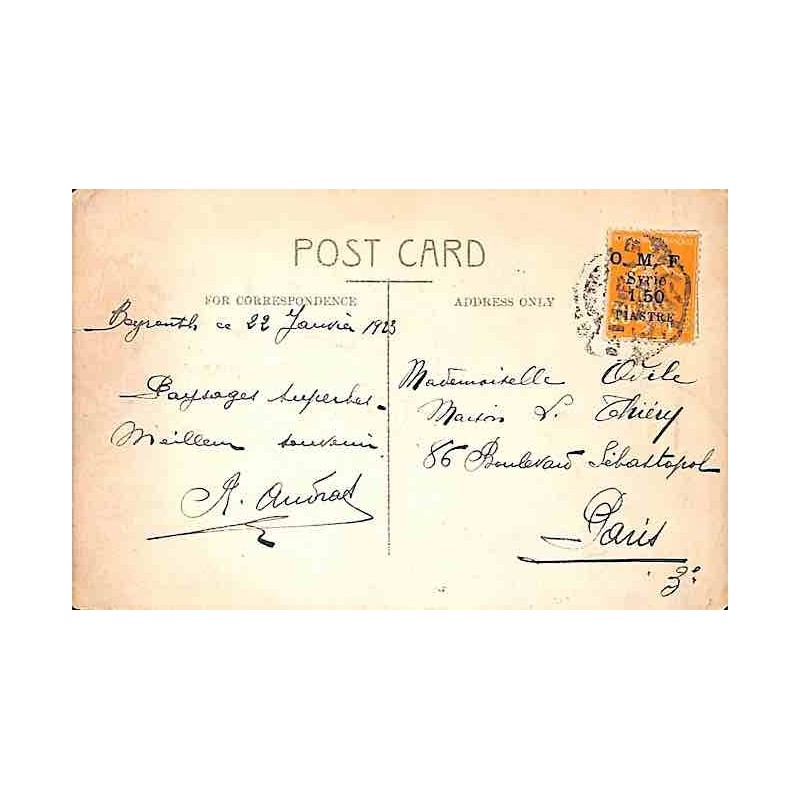 POST CARD
FOR CORRESPONDENCE
ADDRESS ONLY
O. M. F.
Syrie
1.50
PIASTRE
Beyrouth ce 22 Janvier 1923
Paysages superbes -
Meilleur souvenir
A.
Mademoiselle Odile
Maison L. Thiéry
86 Boulevard Sébastopol
Paris
3e